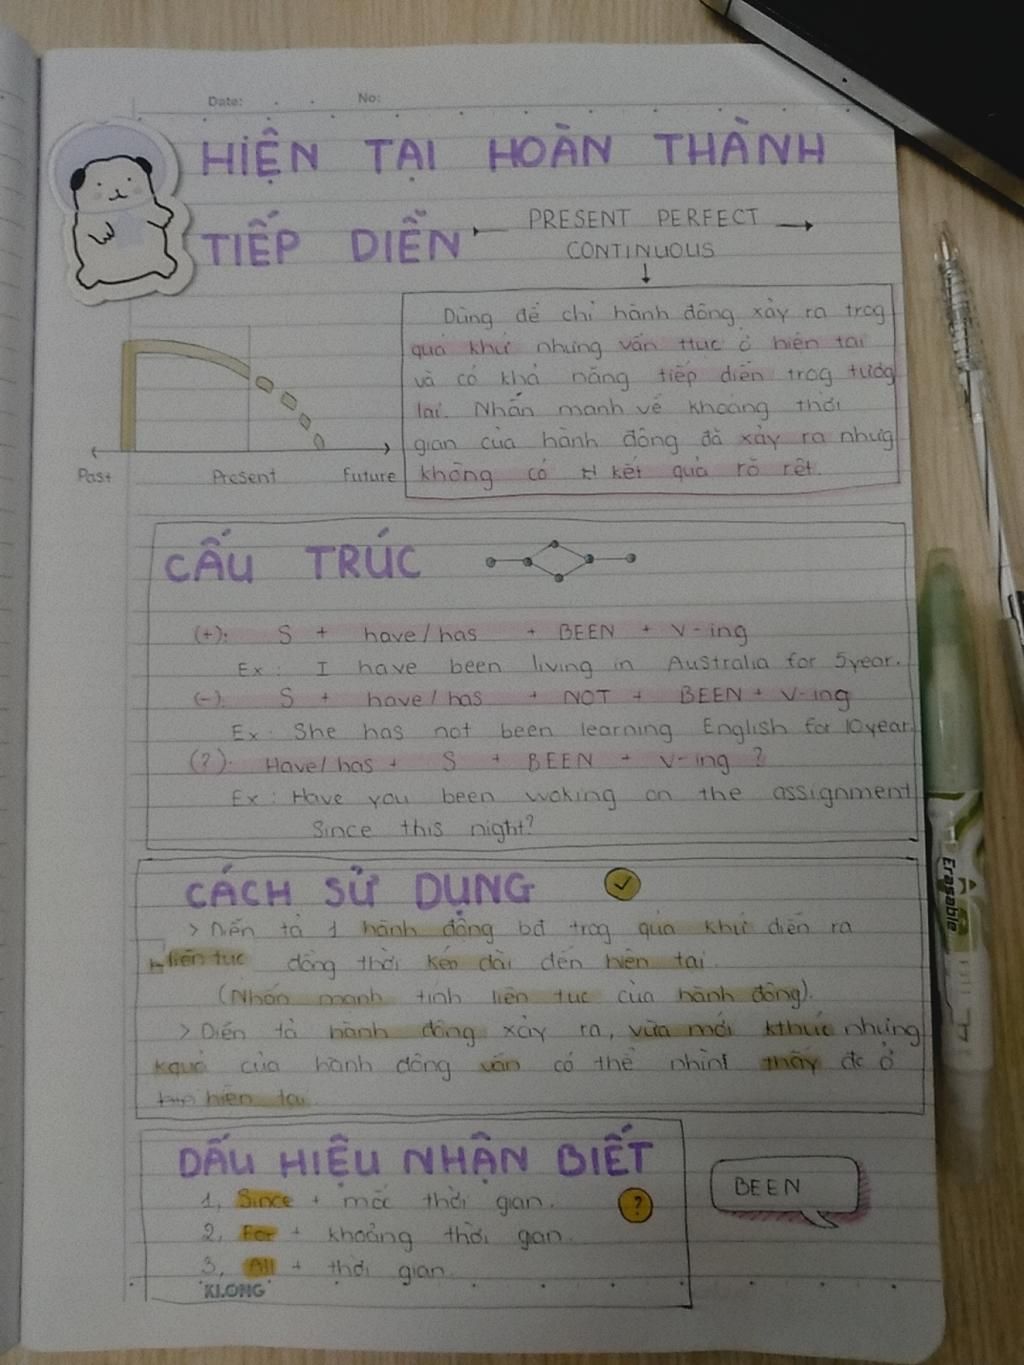 Date:
No:
HIỆN TẠI HOÀN THÀNH
TIẾP DIỄN
PRESENT PERFECT
CONTINUOUS
Dùng để chỉ hành động xảy ra trog
quá khứ nhưng vẫn ttục ở hiện tại
và có khả năng tiếp diễn trog tươg
lai. Nhấn mạnh về khoảng thời
gian của hành động đã xảy ra nhưg
không có kết quả rõ rệt.
Past
Present
Future
CẤU TRÚC
(+): S + have/has + BEEN + V-ing
Ex: I have been living in Australia for 5year.
(-): S + have/has + NOT + BEEN + V-ing
Ex: She has not been learning English for 10year
(?): Have/has + S + BEEN + V-ing ?
Ex: Have you been woking on the assignment
Since this night?
CÁCH SỬ DỤNG
> Diễn tả 1 hành động bđ trog quá khứ diễn ra
liên tục đồng thời kéo dài đến hiện tại.
(Nhấn mạnh tính liên tục của hành động).
> Diễn tả hành động xảy ra, vừa mới kthúc nhưng
kquả của hành động vẫn có thể nhìnt thấy đc ở
hiện tại
DẤU HIỆU NHẬN BIẾT
?
1, Since + mốc thời gian.
2, For + khoảng thời gan.
3, All + thời gian.
BEEN
KLONG
Erasable